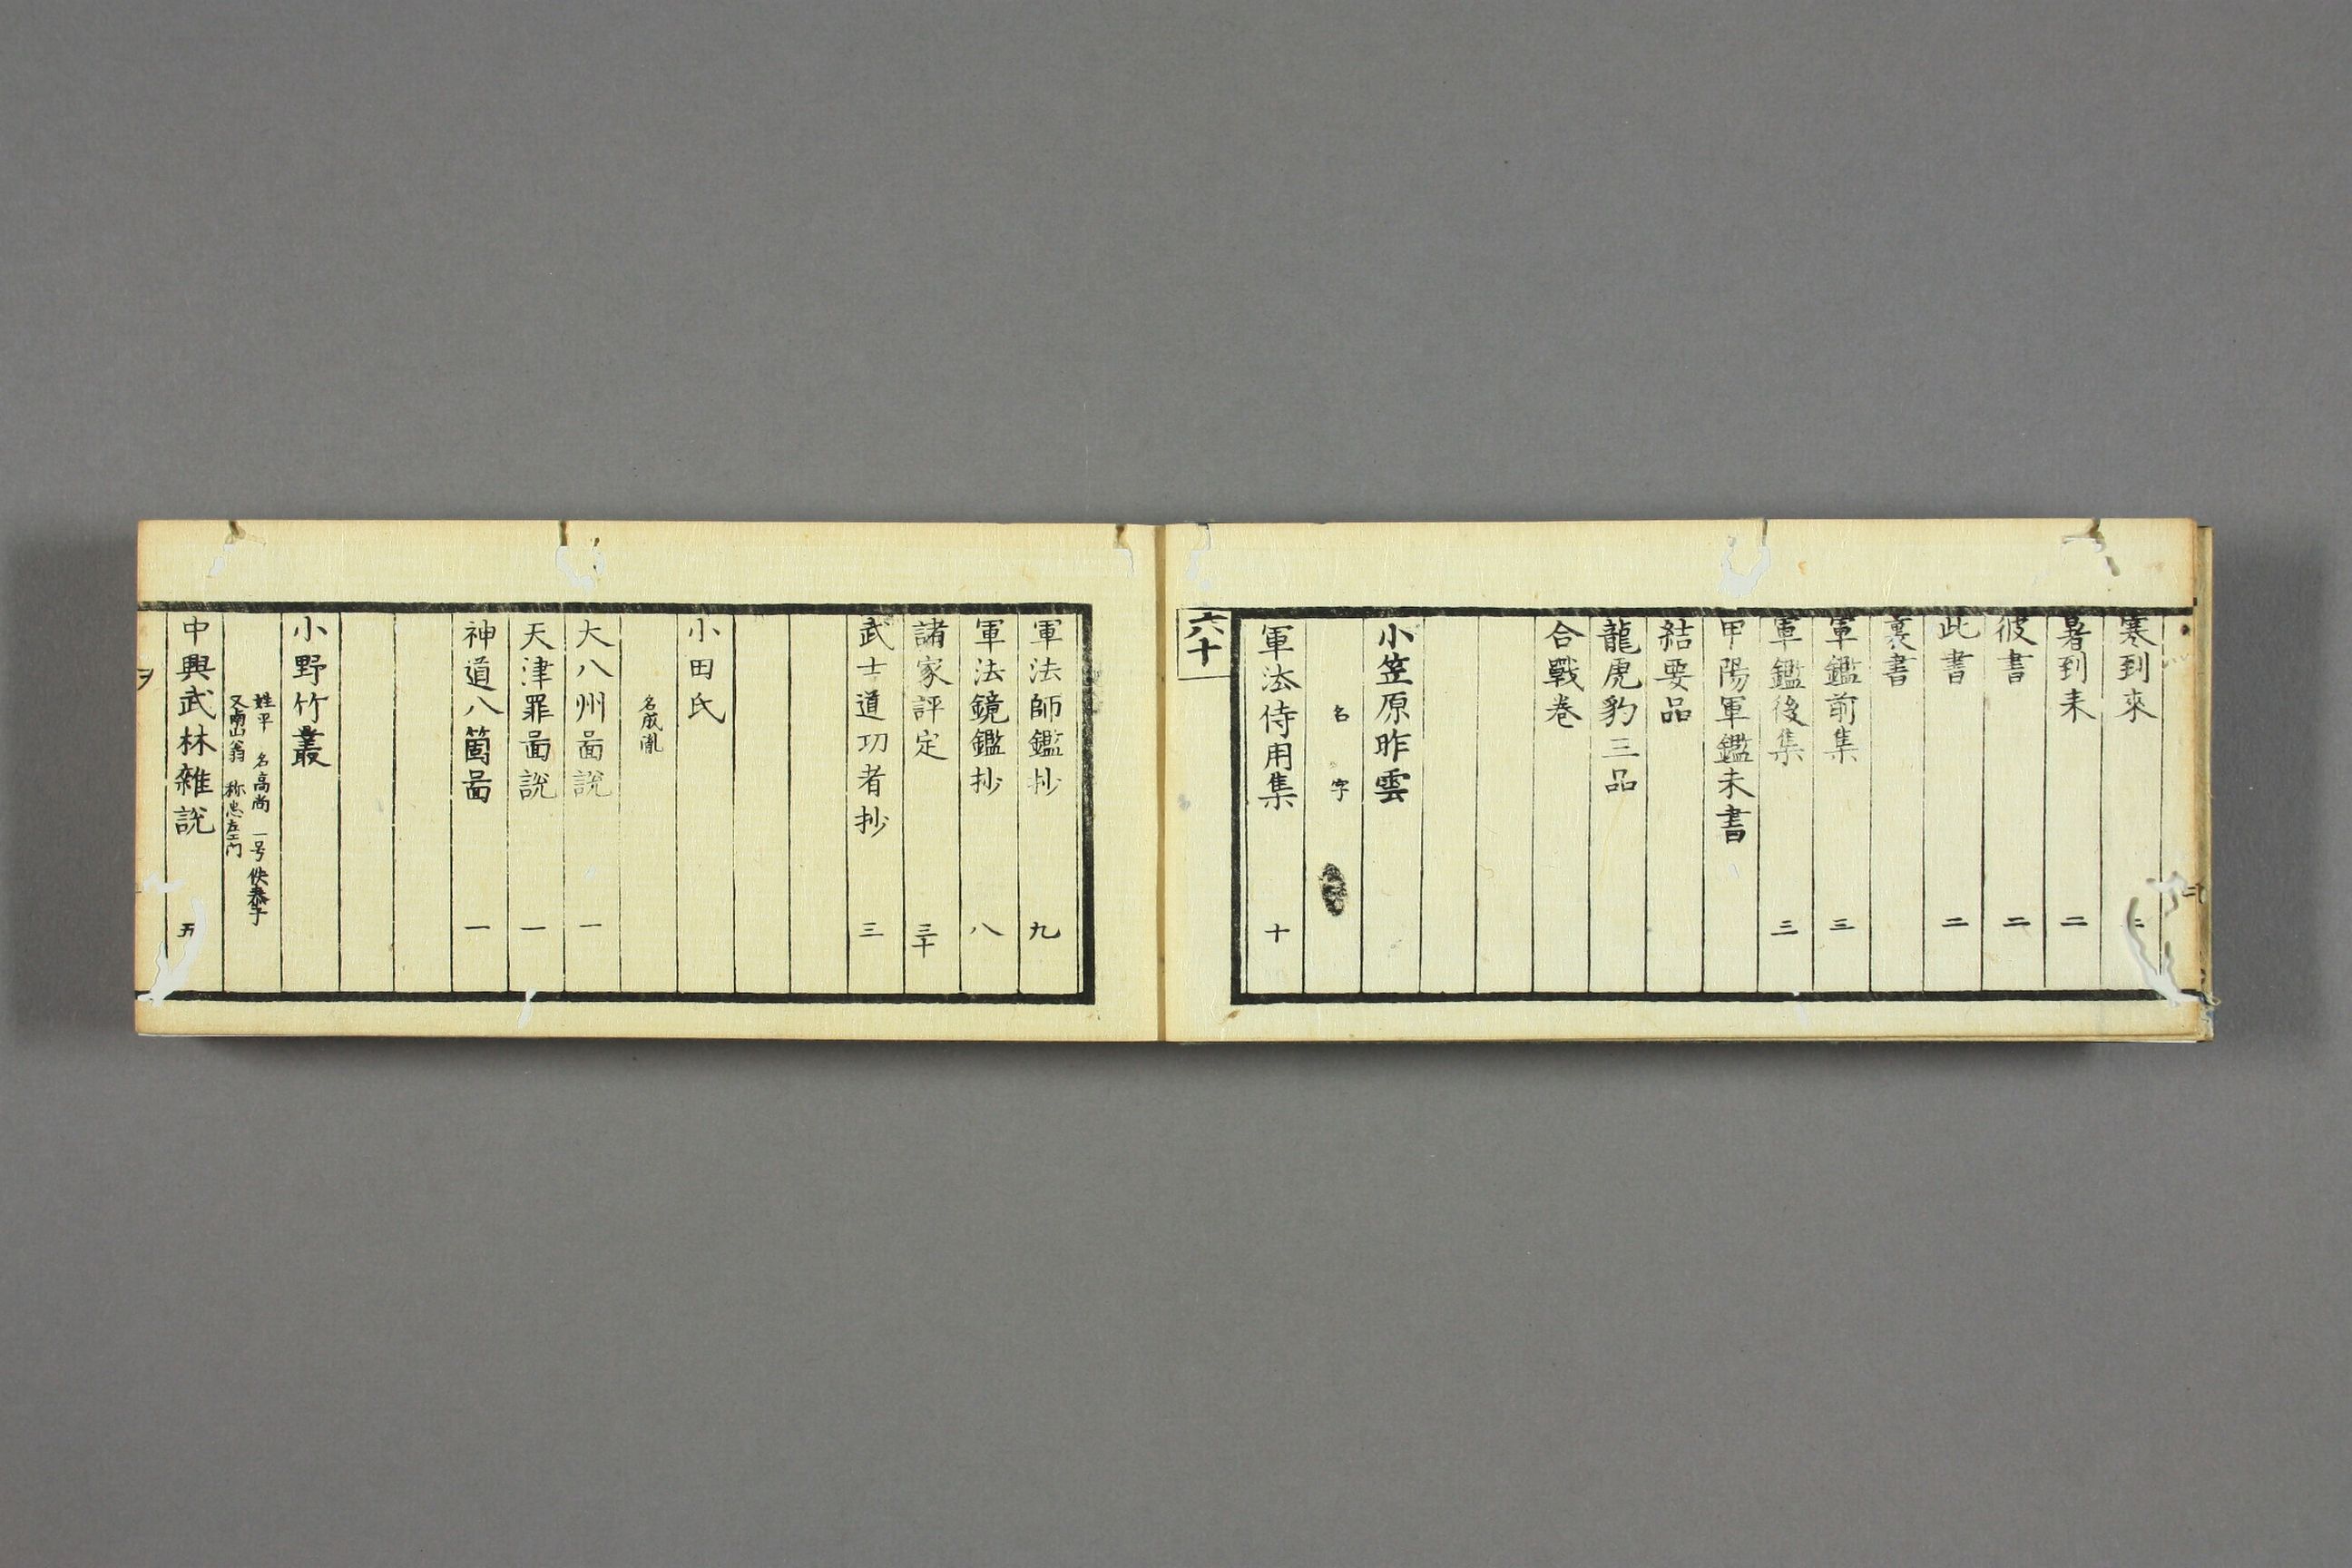 寒到來
暑到来 二
彼書 二
此書 二
裏書
軍鑑前集 三
軍鑑後集 三
甲陽軍鑑末書
結要品
龍虎豹三品
合戰卷
小笠原昨雲
名 字
軍法侍用集 十
六十
軍法師鑑抄 九
軍法鏡鑑抄 八
諸家評定 三十
武士道功者抄 三
小田氏
名成胤
大八州啚説 一
天津罪啚説 一
神道八箇啚 一
小野竹叢
姓平 名高尚 一号
又南山翁 称忠左エ門
中興武林雜説 五
ヲ